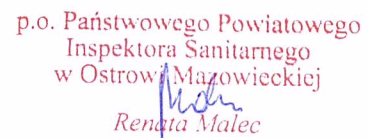 p.o. Państwowego Powiatowego
Inspektora Sanitarnego
w Ostrowi Mazowieckiej
Renata Malec